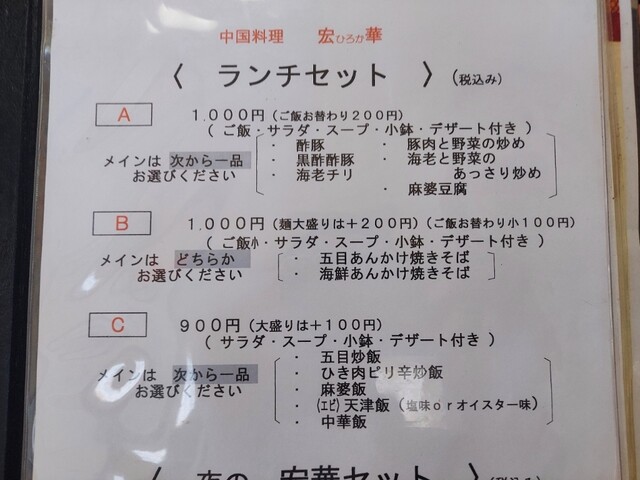 中国料理 宏ひろか華
〈 ランチセット 〉（税込み）
A 1.000円（ご飯お替わり200円）
（ ご飯・サラダ・スープ・小鉢・デザート付き ）
メインは 次から一品
お選びください
・ 酢豚 ・ 豚肉と野菜の炒め
・ 黒酢酢豚 ・ 海老と野菜の
・ 海老チリ あっさり炒め
・ 麻婆豆腐
B 1.000円（麺大盛りは＋200円）（ご飯お替わり小100円）
（ ご飯小・サラダ・スープ・小鉢・デザート付き ）
メインは どちらか
お選びください
・ 五目あんかけ焼きそば
・ 海鮮あんかけ焼きそば
C 900円（大盛りは＋100円）
（ サラダ・スープ・小鉢・デザート付き ）
メインは 次から一品
お選びください
・ 五目炒飯
・ ひき肉ピリ辛炒飯
・ 麻婆飯
・ (エビ)天津飯（塩味orオイスター味）
・ 中華飯
〈 夜の 宏華セット 〉（税込み）